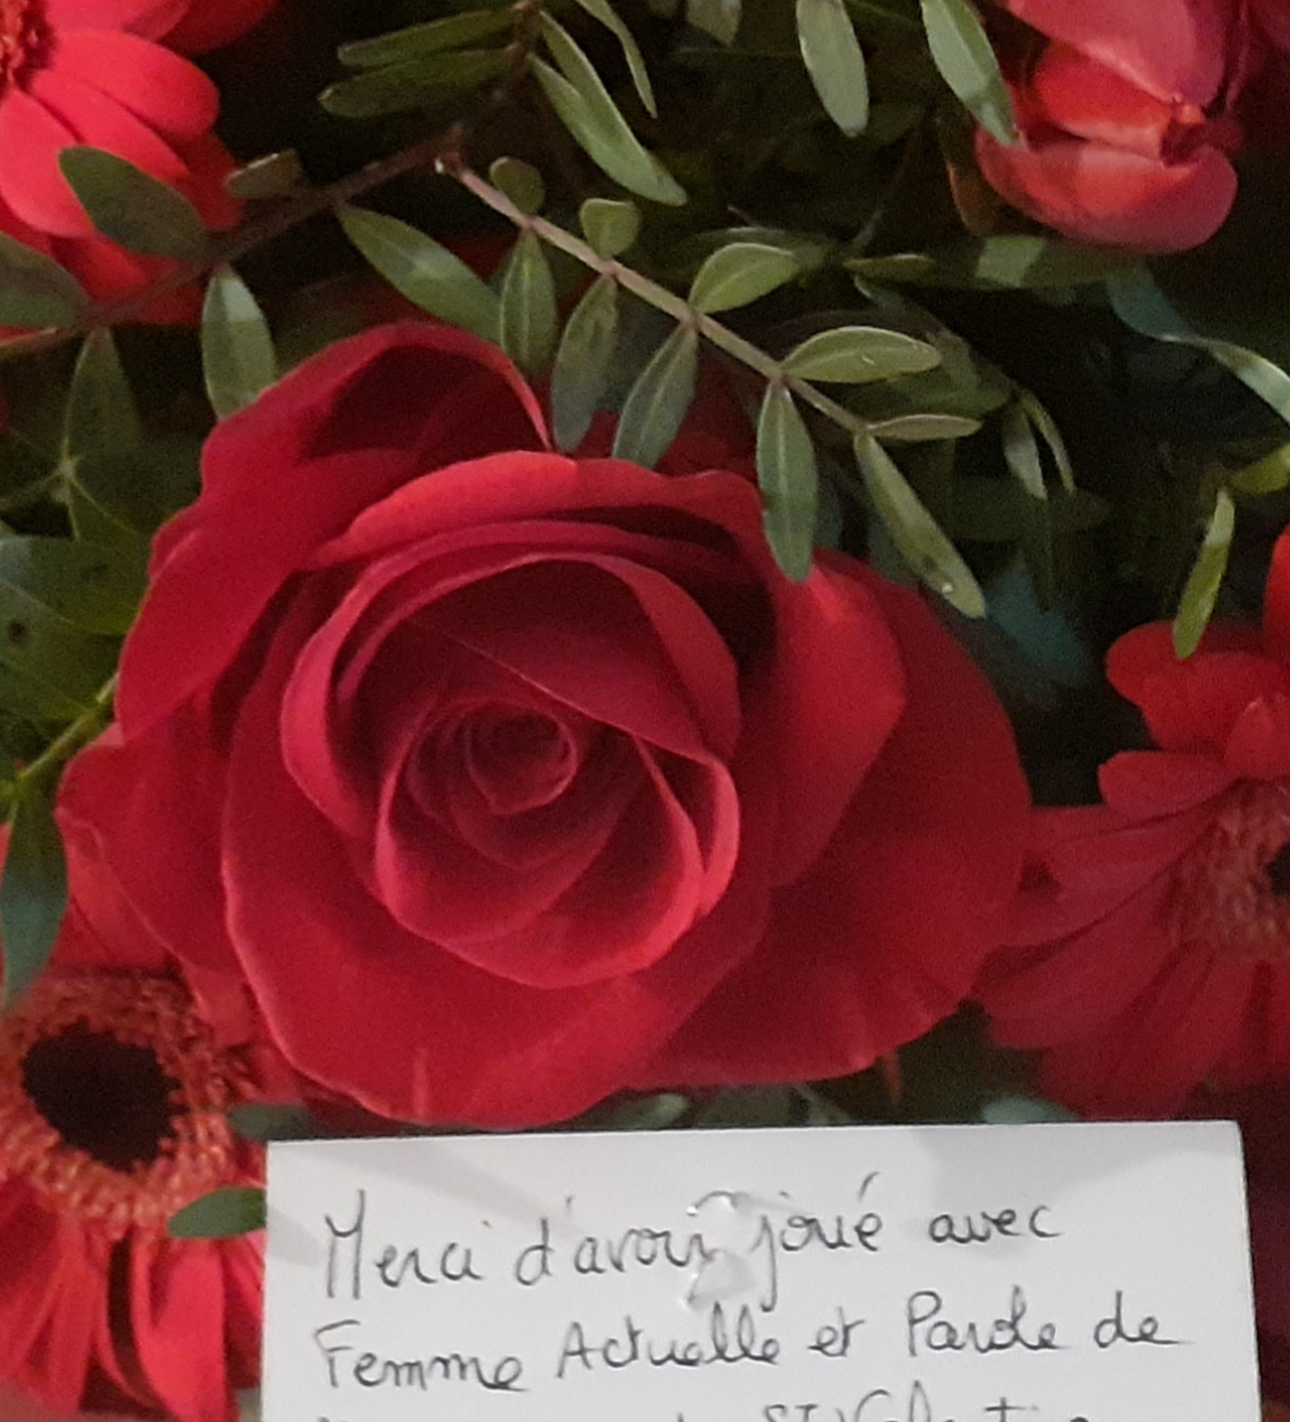 Merci d'avoir joué avec
Femme Actuelle et Parole de